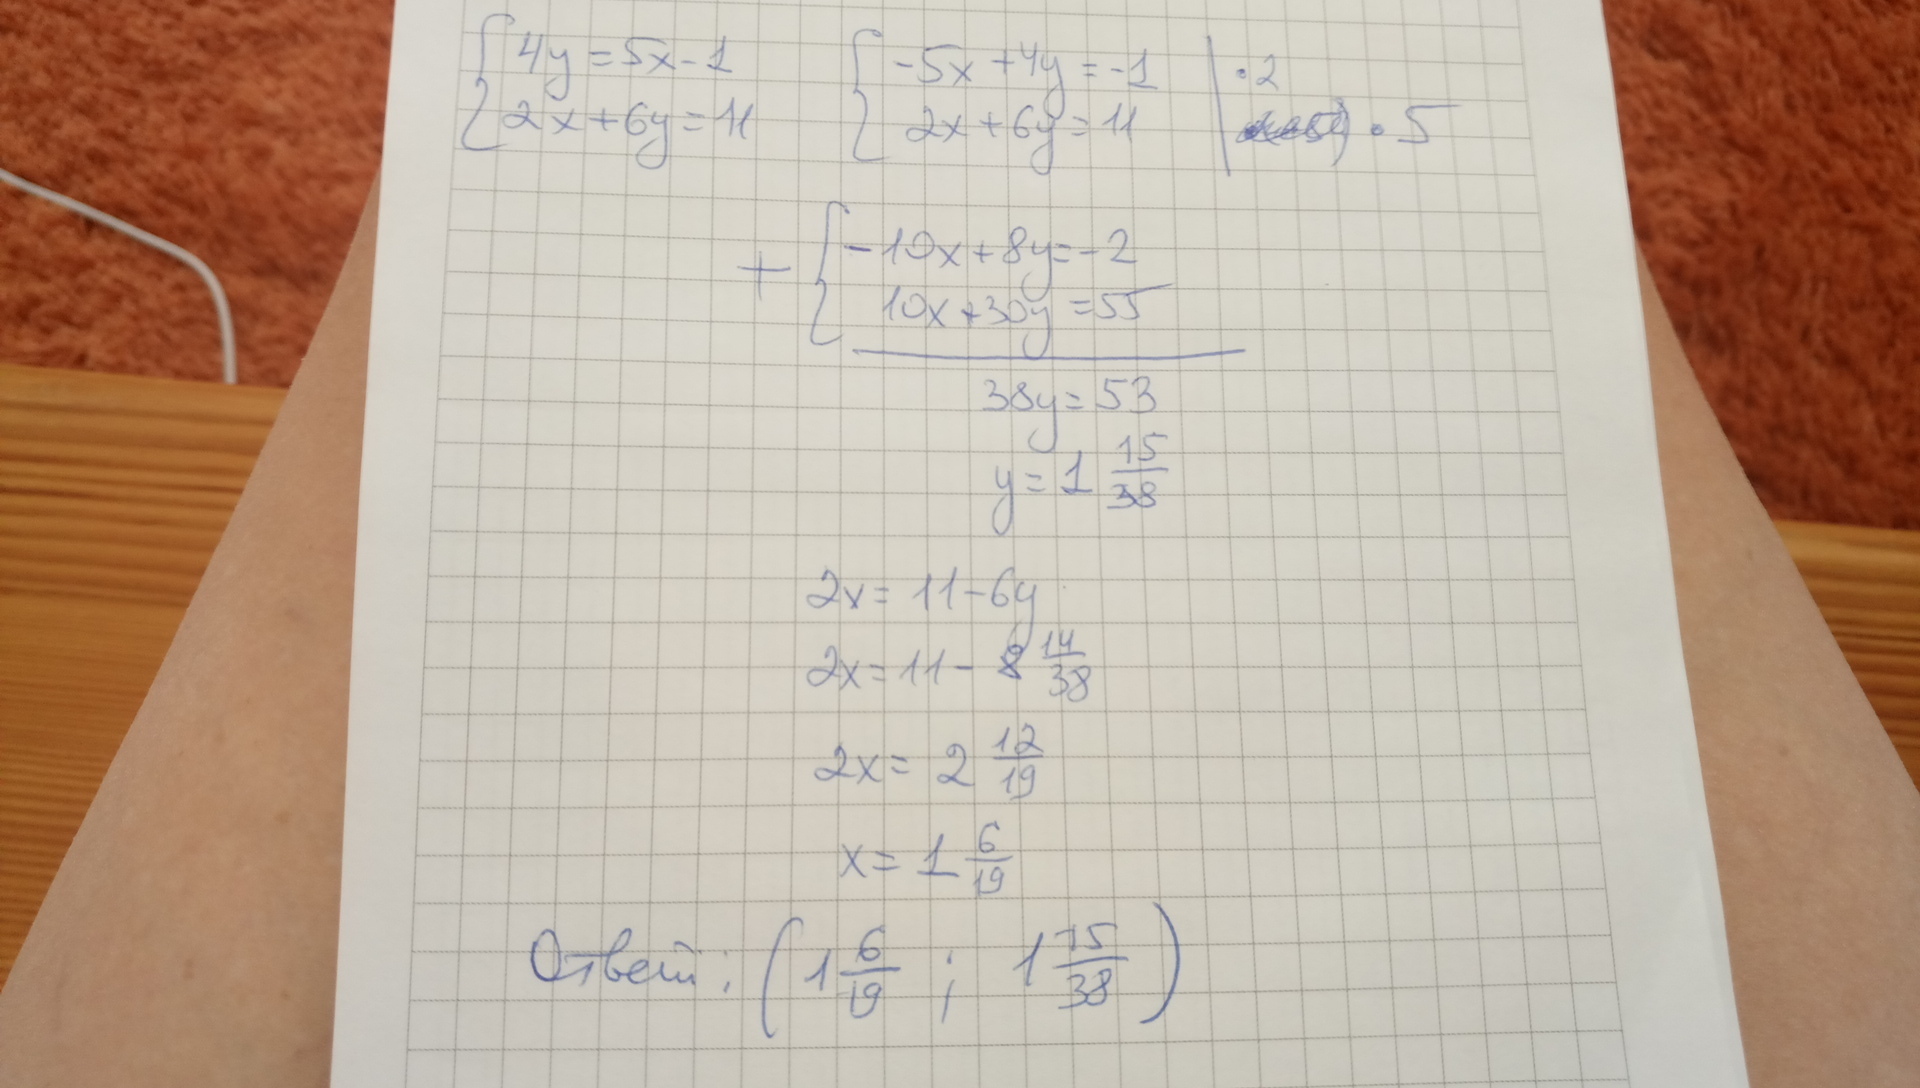 { 4y = 5x - 1
{ 2x + 6y = 11
{ -5x + 4y = -1 | · 2
{ 2x + 6y = 11 | · 5
+ { -10x + 8y = -2
{ 10x + 30y = 55
38y = 53
y = 1 15/38
2x = 11 - 6y
2x = 11 - 8 14/38
2x = 2 12/19
x = 1 6/19
Ответ: (1 6/19 ; 1 15/38)